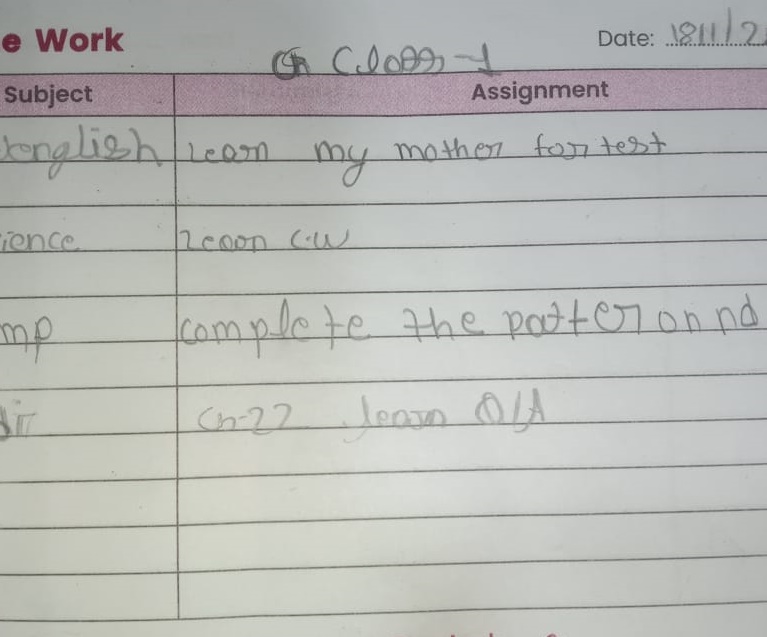 e Work
Date: 18/1/2
Class-1
Subject Assignment
English learn my mother for test
ience learn C.W
mp complete the patter on nd
Ch-22 learn Q/A